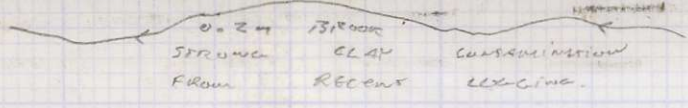 0.2m BROOK
STRONG CLAY CONTAMINATION
FROM RECENT LOGGING.